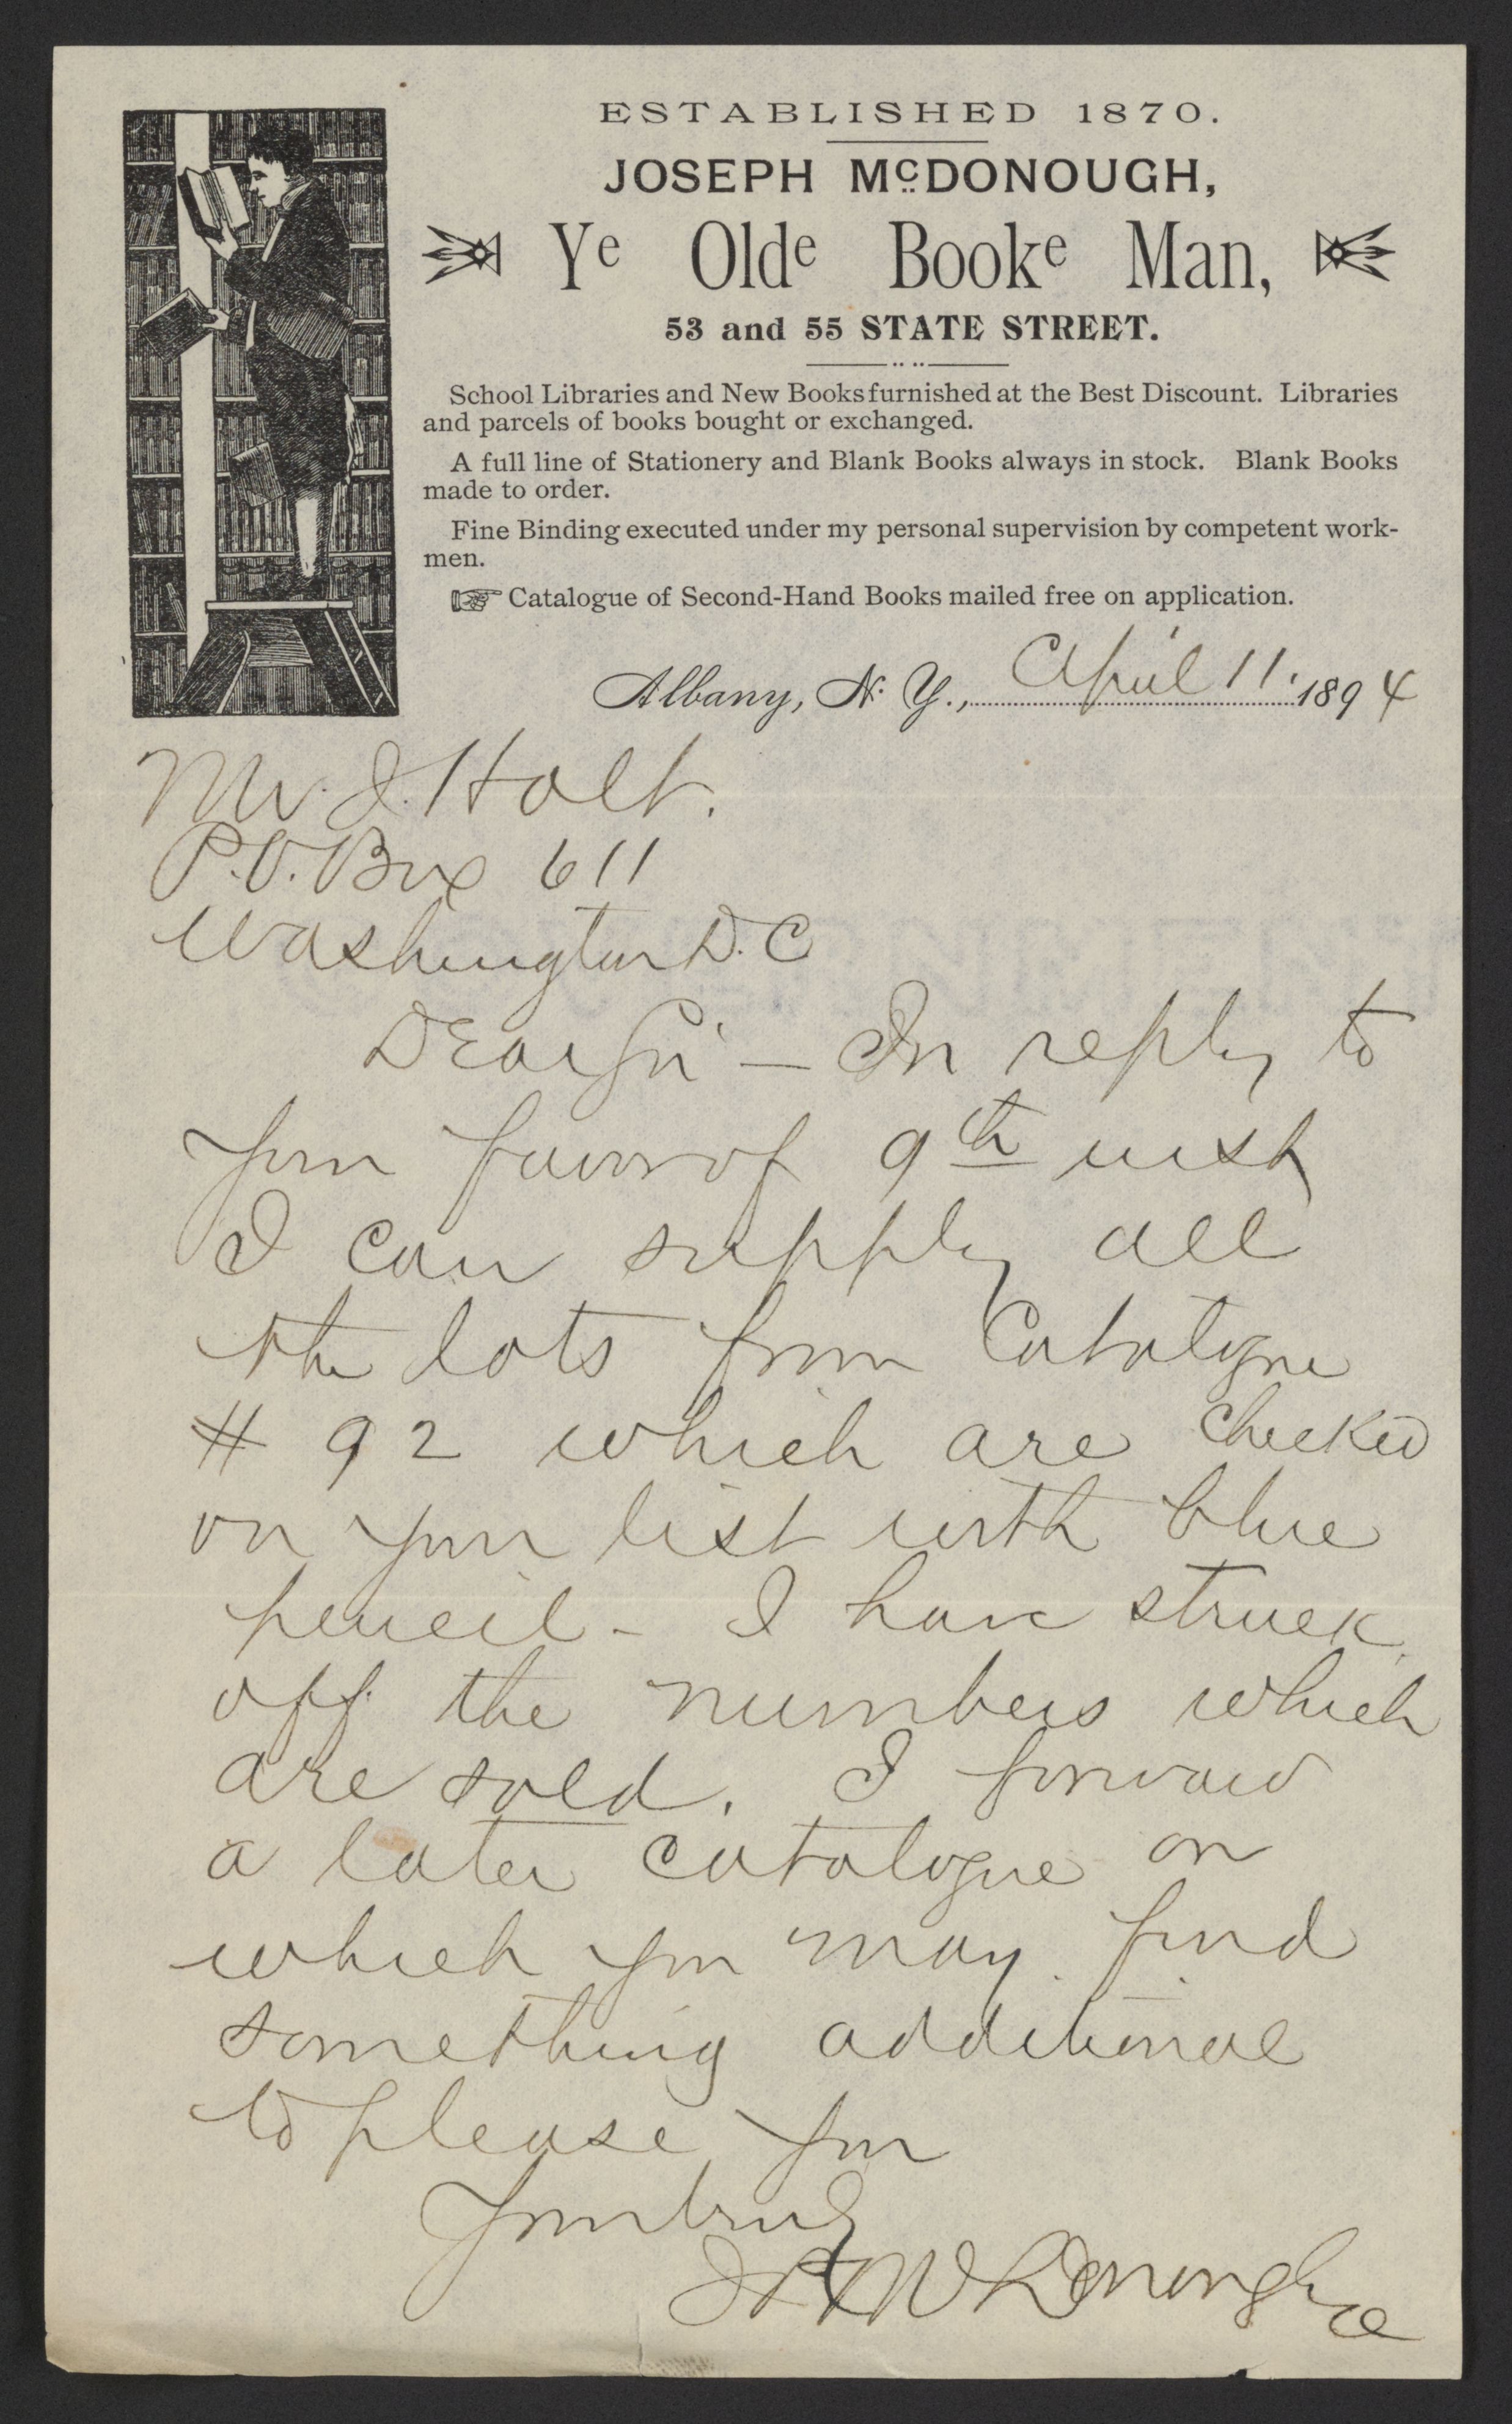 ESTABLISHED 1870.
JOSEPH McDONOUGH,
Ye Olde Booke Man,
53 and 55 STATE STREET.
School Libraries and New Books furnished at the Best Discount. Libraries
and parcels of books bought or exchanged.
A full line of Stationery and Blank Books always in stock. Blank Books
made to order.
Fine Binding executed under my personal supervision by competent work-
men.
☞ Catalogue of Second-Hand Books mailed free on application.
Albany, N. Y., April 11. 1894
Mr. J. Holt.
P.O. Box 611
Washington D.C
Dear Sir — In reply to
your favor of 9th inst
I can supply all
the lots from Catalogue
# 92 which are checked
on your list with blue
pencil - I have struck
off the numbers which
are sold. I forward
a later catalogue on
which you may find
something additional
to please you
Yours truly
McDonough